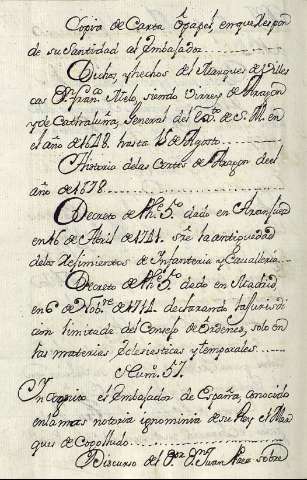 Copia de Carta ô papel, en que respon
de su Santidad al Embajador
Dichos, y hechos del Marques de Villes
cas D. Fran.co Melo, siendo Virrey de Aragon
y de Cathaluña, General del Ex.to de S. M. en
el año de 1648. hasta 15 de Agosto
Historia de las Cortes de Aragon de el
año de 1678.
Decreto de Ph.e 5.º dado en Aranjuez
en 16 de Abril de 1741. sre la antiguedad
de los Regimientos de Infanteria y Cavalleria
Decreto de Ph.e 5.º dado en Madrid,
en 6 de Nob.re de 1714. declarando la Jurisdi
cion limitada del Consejo de Ordenes, solo en
las materias Eclesiasticas y temporales
Num. 57.
el Embajador de España, conocido
en la mas notoria ignominia de su Rey el Mar
ques de Cogolludo
Discurso del S.or D.n Juan sobre